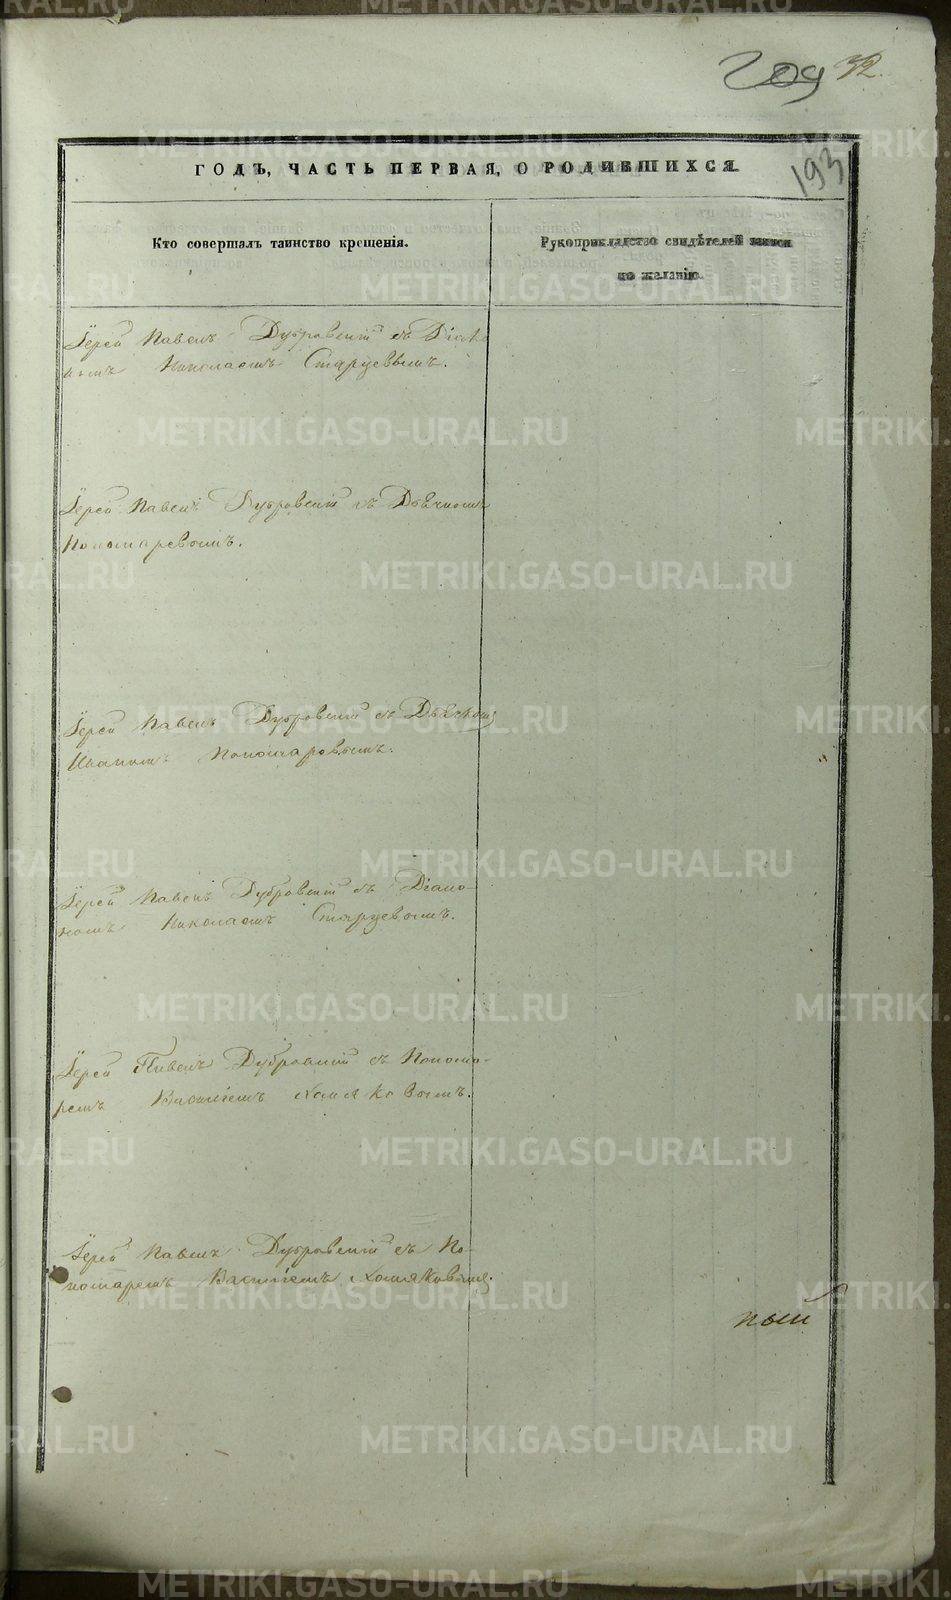 209 32.
193
ГОДЪ, ЧАСТЬ ПЕРВАЯ, О РОДИВШИХСЯ.
Кто совершалъ таинство крещенія.
Рукоприкладство свидѣтелей записи
по желанію.
Іерей Павелъ Дубровскій съ Діако
номъ Николаемъ Старцевымъ.
Іерей Павелъ Дубровскій съ Дьячкомъ
Пономаревымъ.
Іерей Павелъ Дубровскій съ Дьячкомъ
Иваномъ Пономаровымъ.
Іерей Павелъ Дубровскій съ Діако-
номъ Николаемъ Старцевымъ.
Іерей Павелъ Дубровскій съ Понома-
ремъ Василіемъ Хомяковымъ.
Іерей Павелъ Дубровскій съ По-
номаремъ Василіемъ Хомяковымъ.
ный
METRIKI.GASO-URAL.RU